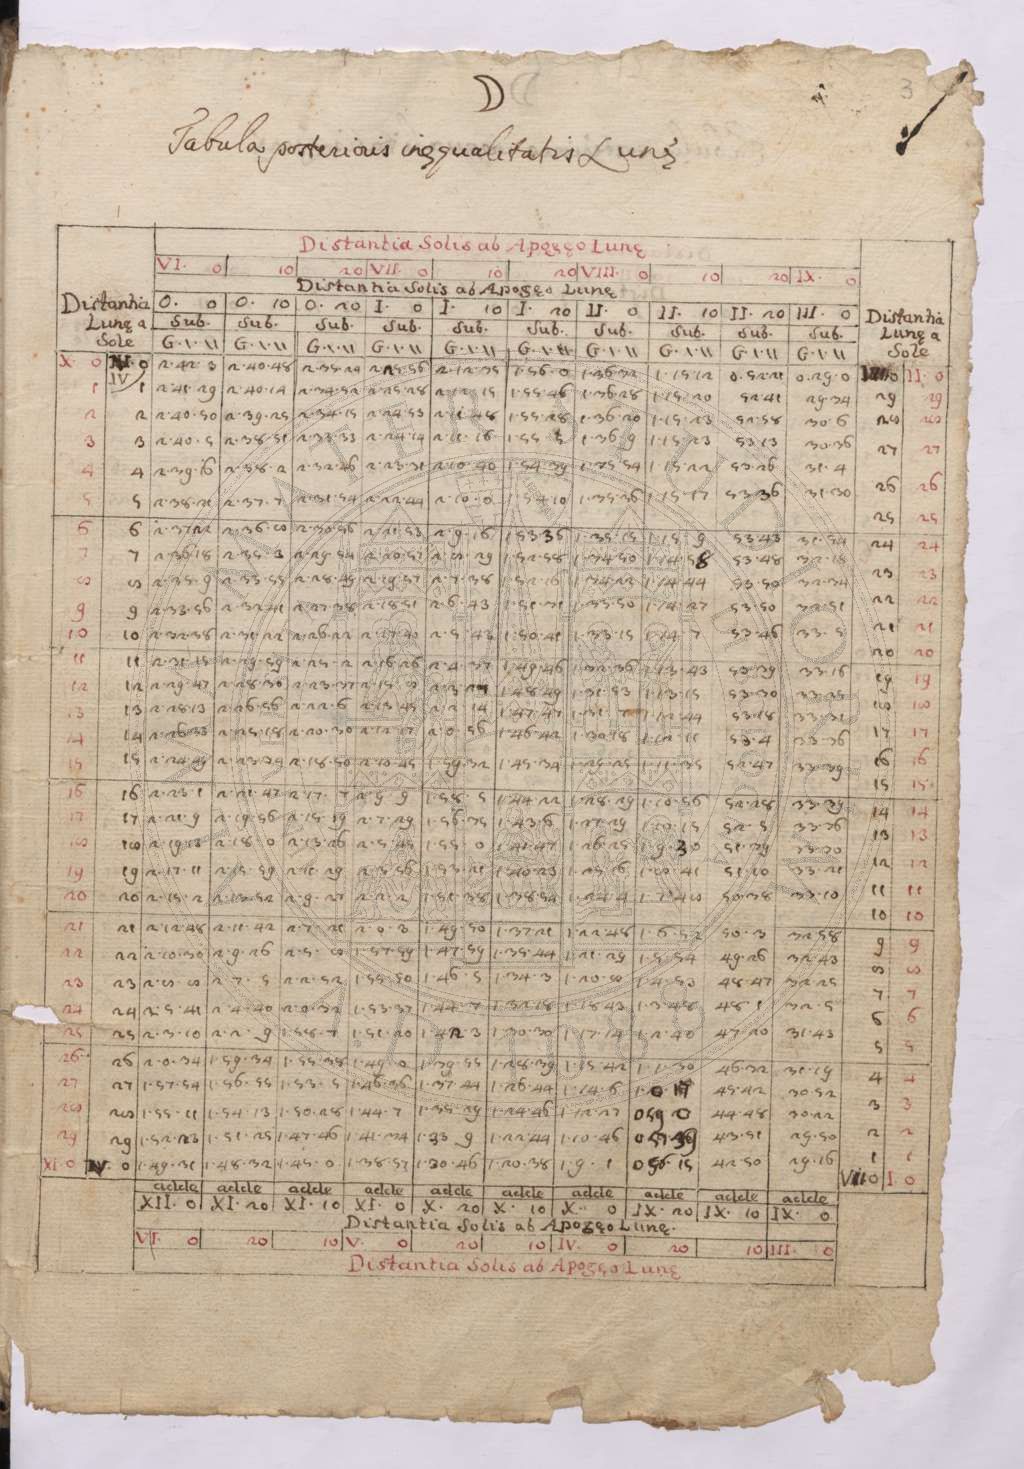 3
Tabula posterioris inęqualitatis Lunę
Distantia Solis ab Apogęo Lunę
VI. 0 10 20 VII. 0 10 20 VIII. 0 10 20 IX. 0
Distantia Solis ab Apogęo Lunę
Distantia Lunę a Sole 0. 0 0. 10 0. 20 I. 0 I. 10 I. 20 II. 0 II. 10 II. 20 III. 0 Distantia Lunę a Sole
Sub. Sub. Sub. Sub. Sub. Sub. Sub. Sub. Sub. Sub.
G. I. II G. I. II G. I. II G. I. II G. I. II G. I. II G. I. II G. I. II G. I. II G. I. II
X. 0 IV 0 2.42.3 2.40.48 2.12.35 1.56.0 1.36.32 1.15.12 0.52.21 0.29.0 II. 0
1 1 2.41.29 2.40.14 2.34.52 2.25.28 2.12.15 1.55.46 1.36.28 1.15.20 52.41 29.34 29 29
2 2 2.40.50 2.39.25 2.34.15 2.24.53 2.11.48 1.55.28 1.36.20 1.15.23 52.58 30.6 28 28
3 3 2.40.5 2.38.51 2.33.33 2.24.14 2.11.16 1.55.5 1.36.9 1.15.23 53.13 30.36 27 27
4 4 2.39.16 2.58.2 2.32.46 2.23.31 2.10.40 1.54.39 1.35.54 1.15.22 53.26 31.4 26 26
5 5 2.38.21 2.37.7 2.31.54 2.22.44 2.10.0 1.54.10 1.35.36 1.15.17 53.36 31.30 25 25
6 6 2.37.22 2.36.8 2.30.56 2.21.53 2.9.16 1.53.36 1.35.15 1.15.9 53.43 31.54 24 24
7 7 2.36.18 2.35.3 2.29.54 2.20.57 2.8.29 1.52.58 1.34.50 1.14.58 53.48 32.15 23 23
8 8 2.35.9 2.33.55 2.28.49 2.19.57 2.7.38 1.52.16 1.34.22 1.14.44 53.50 32.34 22 22
9 9 2.33.56 2.32.41 2.27.38 2.18.51 2.6.43 1.51.31 1.33.50 1.14.27 53.50 32.51 21 21
10 10 2.32.38 2.31.22 2.26.22 2.17.40 2.5.43 1.50.41 1.33.15 1.14.7 53.46 33.5 20 20
11 11 2.31.15 2.29.59 2.25.2 2.16.26 2.4.37 1.49.46 1.32.36 1.13.43 53.39 33.16 19 19
12 12 2.29.47 2.28.30 2.23.37 2.15.8 1.48.49 1.31.53 1.13.15 53.30 33.25 18 18
13 13 2.28.13 2.26.56 2.22.6 2.13.45 2.2.14 1.47.47 1.31.7 1.12.44 53.18 33.31 17 17
14 14 2.26.33 2.25.18 2.20.30 2.12.17 2.0.56 1.46.42 1.30.18 1.12.11 53.4 33.36 16 16
15 15 2.24.49 2.23.34 2.18.50 2.10.45 1.59.32 1.45.34 1.29.25 1.11.35 52.47 33.39 15 15
16 16 2.23.1 2.21.47 2.17.7 2.9.9 1.58.5 1.44.22 1.28.29 1.10.56 52.28 33.39 14 14
17 17 2.21.9 2.19.56 2.15.19 2.7.29 1.56.35 1.43.6 1.27.29 1.10.15 52.5 33.36 13 13
18 18 2.19.13 2.18.0 2.13.26 2.5.45 1.55.0 1.41.47 1.26.25 1.9.30 51.39 33.30 12 12
19 19 2.17.11 2.15.59 2.11.29 2.3.56 1.53.21 1.40.23 1.25.16 1.8.41 51.10 33.21 11 11
20 20 2.15.2 2.13.52 2.9.27 2.2.2 1.51.38 1.38.54 1.24.4 1.7.48 50.38 33.10 10 10
21 21 2.12.48 2.11.42 2.7.21 2.0.3 1.49.50 1.37.21 1.22.48 1.6.52 50.3 32.58 9 9
22 22 2.10.30 2.9.26 2.5.8 1.57.59 1.47.59 1.35.44 1.21.29 1.5.54 49.26 32.43 8 8
23 23 2.8.8 2.7.5 2.2.52 1.55.50 1.46.5 1.34.3 1.20.8 1.4.53 48.47 32.25 7 7
24 24 2.5.41 2.4.40 2.0.32 1.53.37 1.44.7 1.32.18 1.18.43 1.3.48 48.1 32.5 6 6
25 25 2.3.10 2.2.9 1.58.7 1.51.20 1.42.3 1.30.30 1.17.14 1.2.40 47.20 31.43 5 5
26 26 2.0.34 1.59.34 1.55.38 1.49.0 1.39.55 1.28.39 1.15.42 1.1.30 46.32 31.19 4 4
27 27 1.57.54 1.56.55 1.53.5 1.46.36 1.37.44 1.26.44 1.14.6 1.0.17 45.42 30.52 3 3
28 28 1.55.11 1.54.13 1.50.28 1.44.7 1.35.29 1.24.46 1.12.27 0.59.0 44.48 30.22 2 2
29 29 1.52.23 1.51.25 1.47.46 1.41.34 1.33.9 1.22.44 1.10.46 43.51 29.50 1 1
XI. 0 IV. 0 1.49.31 1.48.32 1.45.0 1.38.57 1.30.46 1.20.38 1.9.1 0.56.15 42.50 29.16 VIII 0 I. 0
adde adde adde adde adde adde adde adde adde adde
XII. 0 XI. 20 XI. 10 XI. 0 X. 20 X. 10 X. 0 IX. 20 IX. 10 IX. 0
Distantia Solis ab Apogęo Lunę.
VI. 0 20 10 V. 0 20 10 IV. 0 20 10 III. 0
Distantia Solis ab Apogęo Lunę